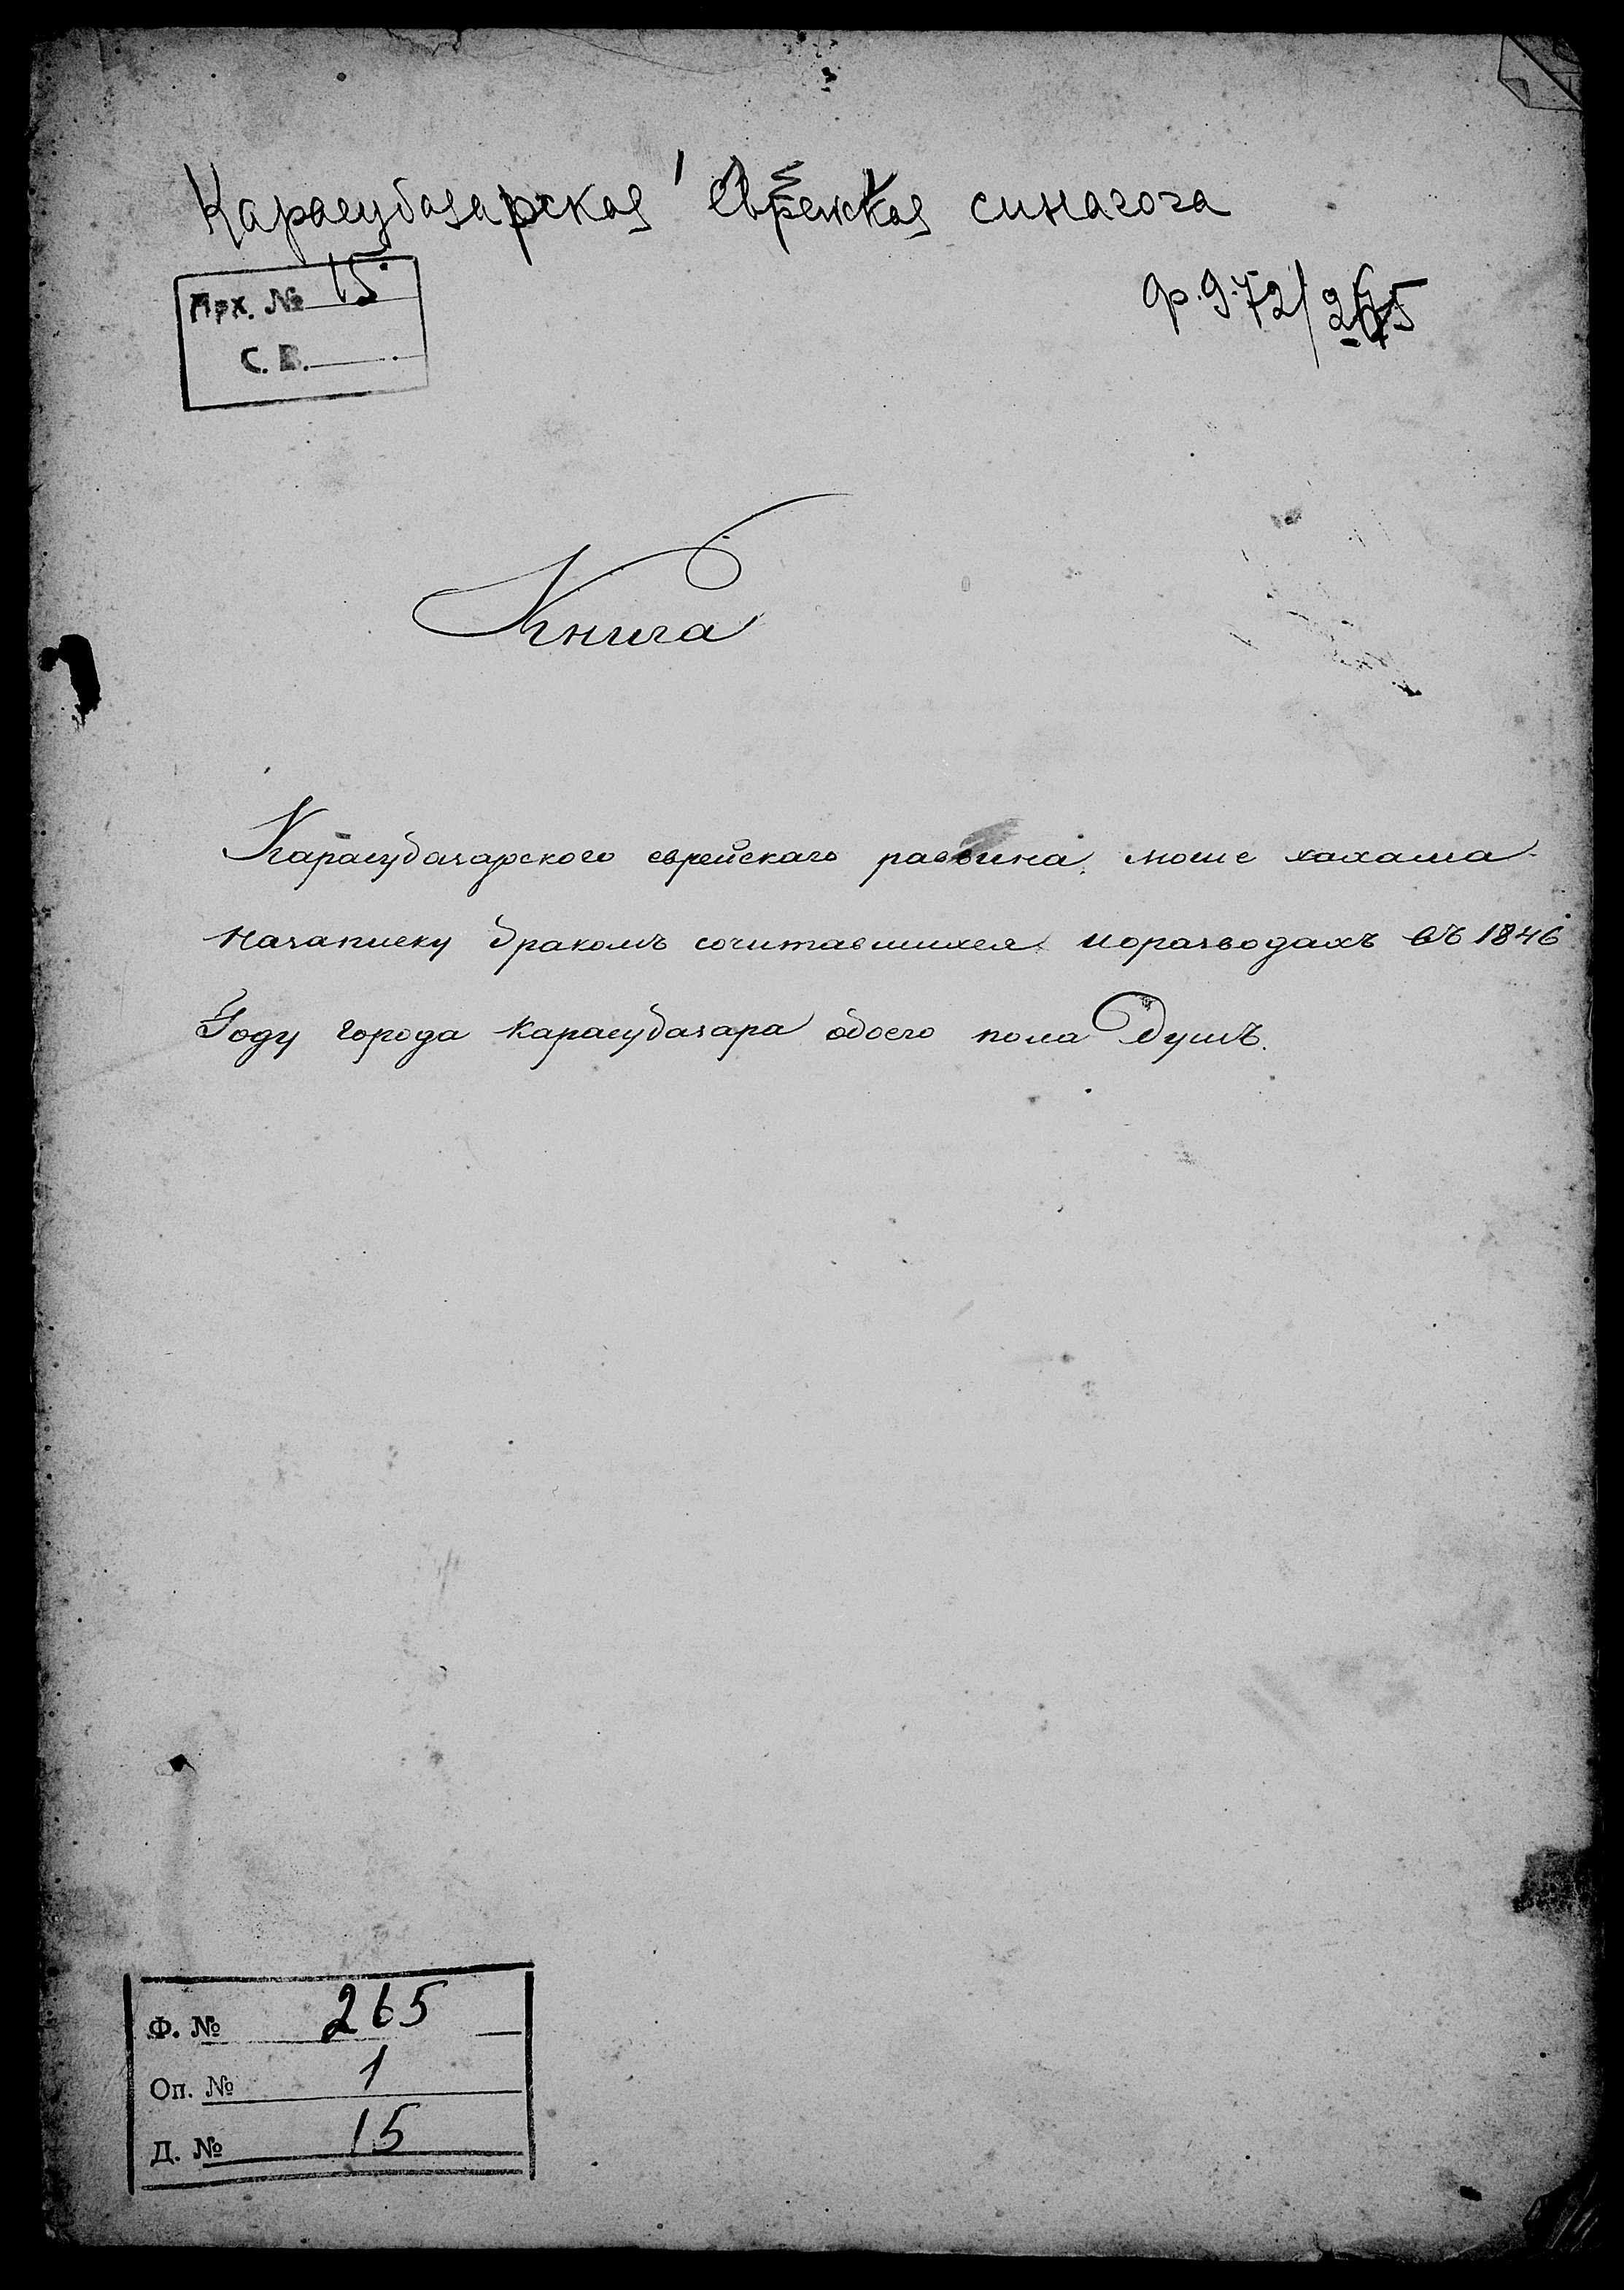 Карасубазарская еврейская синагога
Арх. № 15
С. В.
ф. 972/265
Книга
Карасубазарского еврейскаго раввина, моше хахама
Назаписку бракомъ сочитавшихся иоразводахъ въ 1846
Году города Карасубазара обоего пола Душъ.
Ф. № 265
Оп. № 1
Д. № 15